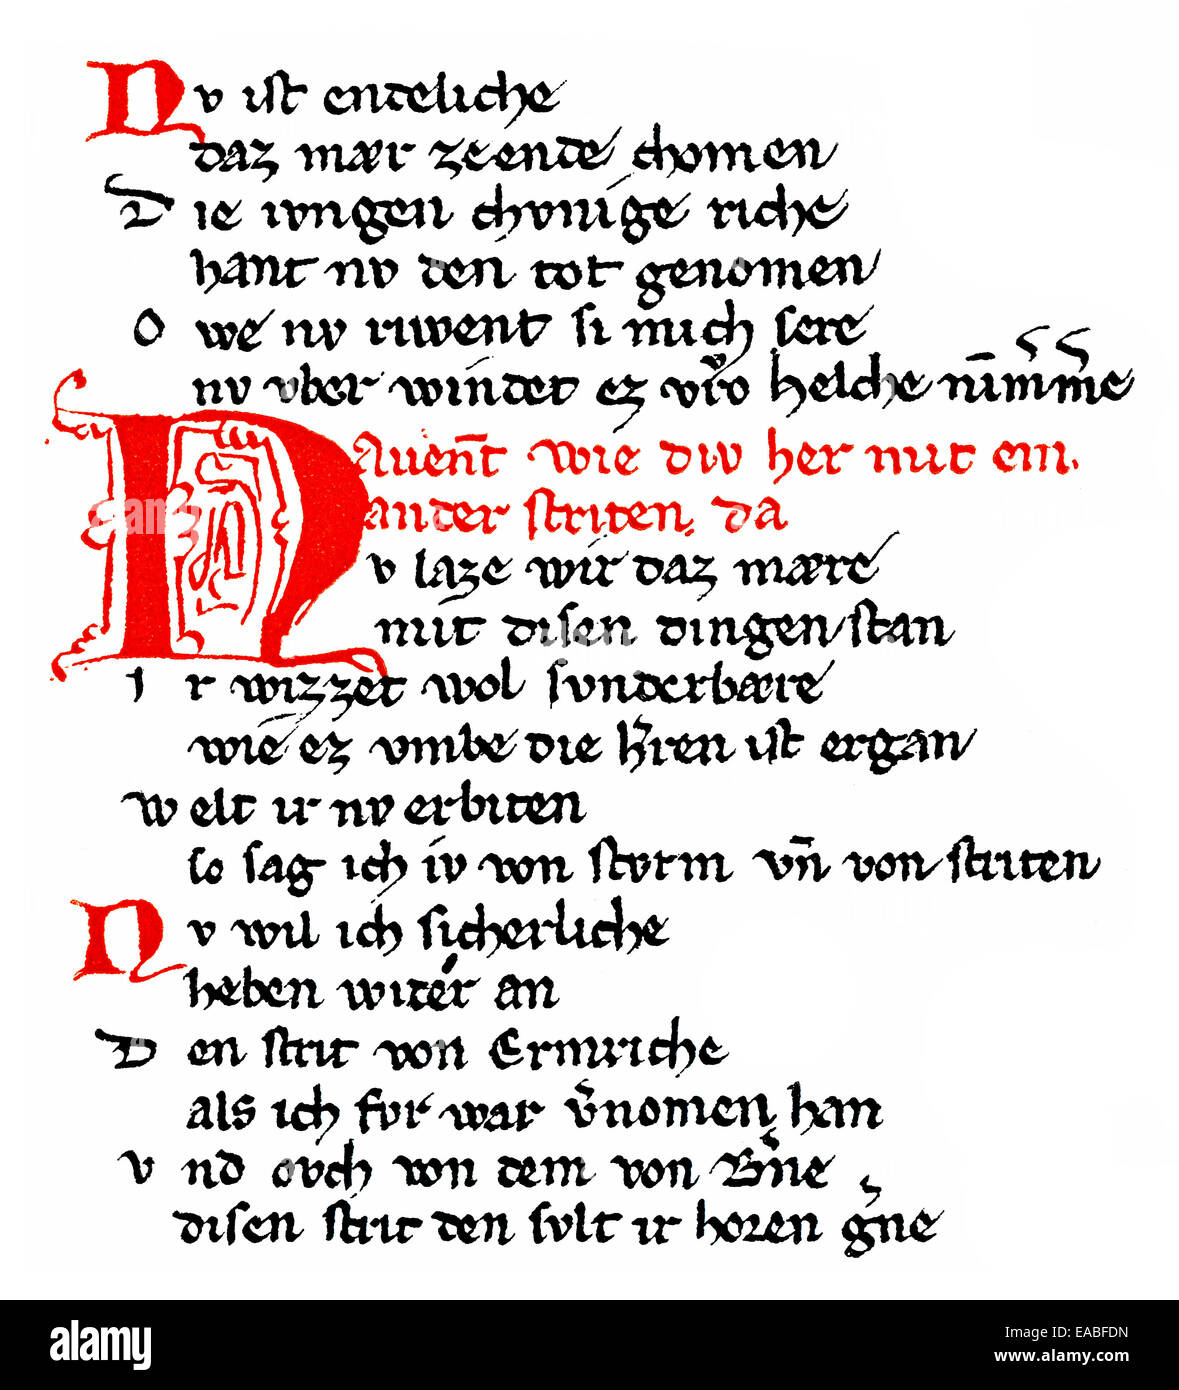 Nv ist endeliche
daz mær ze ende chomen
Die ivngen chvnige riche
hant nv den tot genomen
O we nv riwent si mich sere
nv vber windet ez vro helche nimm̄e
Auent̄ wie div her mit ein
ander striten. da
Nv laze wir daz mære
mit disen dingen stan
ir wizzet wol svnderbære
wie ez vmbe die h̓ren ist ergan
Welt ir nv erbiten
so sag ich iv von stvrm vn̄ von striten
Nv wil ich sicherliche
heben wider an
Den strit von Ermriche
als ich fvr war v̓nomen han
Vnd ovch von dem von B̓ne
disen strit den svlt ir horen g̓ne
alamy
Image ID: EABFDN
www.alamy.com